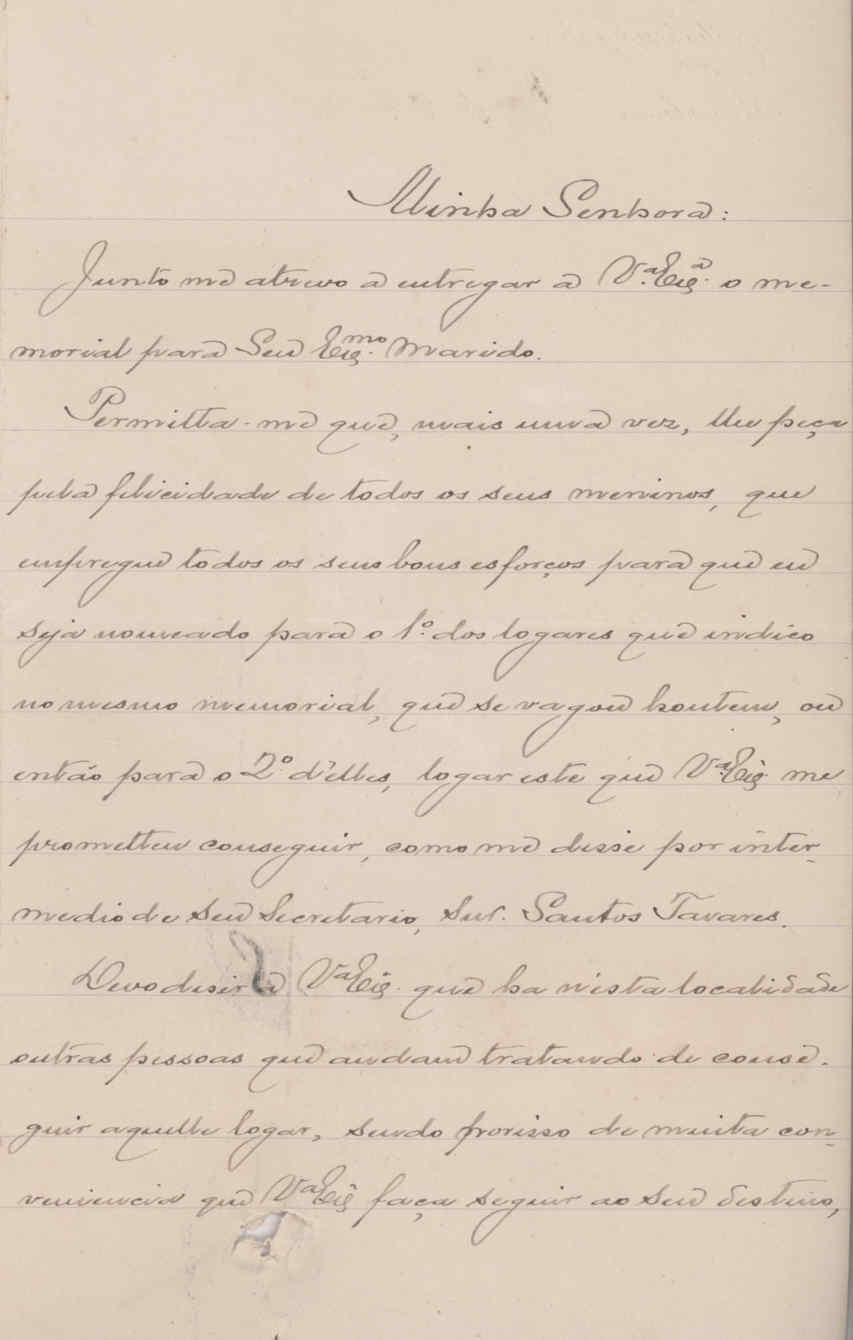 Minha Senhora:
Junto me atrevo a entregar a V.ª Exª. o me-
morial para Seu Exmo. Marido.
Permitta-me que, mais uma vez, lhe peça
pela felicidade de todos os seus meninos, que
empregue todos os seus bons esforços para que eu
seja nomeado para o 1.º dos logares que indico
no mesmo memorial, que se vagou hontem, ou
então para o 2.º d'elles, logar este que Vª Exª. me
prometteu conseguir, como me disse por inter-
medio de seu Secretario, Snr. Santos Tavares.
Devo desir a Vª Exª. que ha n'esta localidade
outras pessoas que andam tratando de conse-
guir aquelle logar, sendo porisso de muita con-
veniencia que Vª Exª faça seguir ao seu destino,